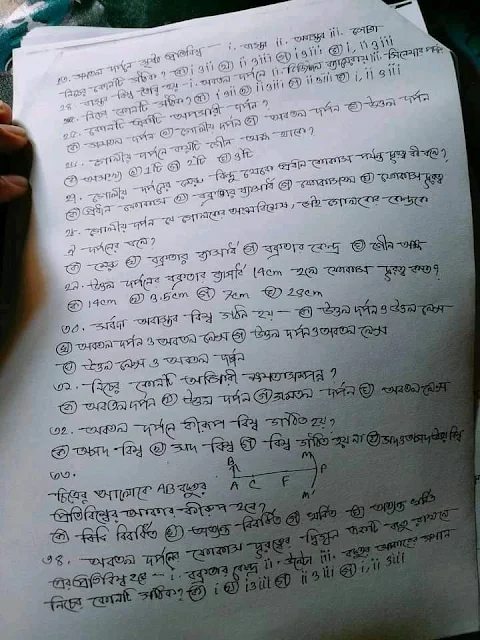 ২৩. সমতল দর্পনে সৃষ্ট প্রতিবিম্ব — i. বাস্তব ii. অবাস্তব iii. সোজা
নিচের কোনটি সঠিক? ক) i ও ii খ) ii ও iii গ) i ও iii ঘ) i, ii ও iii
২৪. বাস্তব বিম্ব তৈরি হয় — i. অবতল দর্পনে ii. iii. সিনেমার পর্দায়
নিচের কোনটি সঠিক? ক) i ও ii খ) i ও iii গ) ii ও iii ঘ) i, ii ও iii
২৫. কোনটি অপসারী দর্পন?
ক) সমতল দর্পন খ) গোলীয় দর্পন গ) অবতল দর্পন ঘ) উত্তল দর্পন
২৬. গোলীয় দর্পনে কয়টি গৌন অক্ষ থাকে?
ক) অসংখ্য খ) 1টি গ) 2টি ঘ) 3টি
২৭. গোলীয় দর্পনের মেরু বিন্দু থেকে প্রধান ফোকাস পর্যন্ত দূরত্ব কী বলে?
ক) প্রধান ফোকাস খ) বক্রতার ব্যাসার্ধ গ) ফোকাসতল ঘ) ফোকাস দূরত্ব
২৮. গোলীয় দর্পন যে গোলকের অংশবিশেষ, সেই গোলকের কেন্দ্রকে
ঐ দর্পনের বলে?
ক) মেরু খ) বক্রতার ব্যাসার্ধ গ) বক্রতার কেন্দ্র ঘ) গৌন অক্ষ
২৯. উত্তল দর্পনের বক্রতার ব্যাসার্ধ 14cm হলে ফোকাস দূরত্ব কত?
ক) 14cm খ) 3.5cm গ) 7cm ঘ) 28cm
৩০. সর্বদা অবাস্তব বিম্ব গঠন হয় — ক) উত্তল দর্পন ও উত্তল লেন্স
খ) অবতল দর্পন ও অবতল লেন্স গ) উত্তল দর্পন ও অবতল লেন্স
ঘ) উত্তল লেন্স ও অবতল দর্পন
৩১. নিচের কোনটি অভিসারী ক্ষমতাসম্পন্ন?
ক) অবতল দর্পন খ) উত্তল দর্পন গ) সমতল দর্পন ঘ) অবতল লেন্স
৩২. অবতল দর্পনে কীরূপ বিম্ব গঠিত হয়?
ক) অসদ বিম্ব খ) সদ বিম্ব গ) বিম্ব গঠিত হয় না ঘ) সদ ও অসদ উভয় বিম্ব
৩৩.
B M
A C F P
M'
চিত্রের আলোকে AB বস্তুর
প্রতিবিম্বের আকার কীরূপ হবে?
ক) বিবর্ধিত খ) অত্যন্ত বিবর্ধিত গ) খর্বিত ঘ) অত্যন্ত খর্বিত
৩৪. অবতল দর্পনের ফোকাস দূরত্বের দ্বিগুন বস্তু রাখলে
এর প্রতিবিম্ব হবে — i. বক্রতার কেন্দ্রে ii. উল্টো iii. বস্তুর আকারের সমান
নিচের কোনটি সঠিক? ক) i খ) i ও iii গ) ii ও iii ঘ) i, ii ও iii